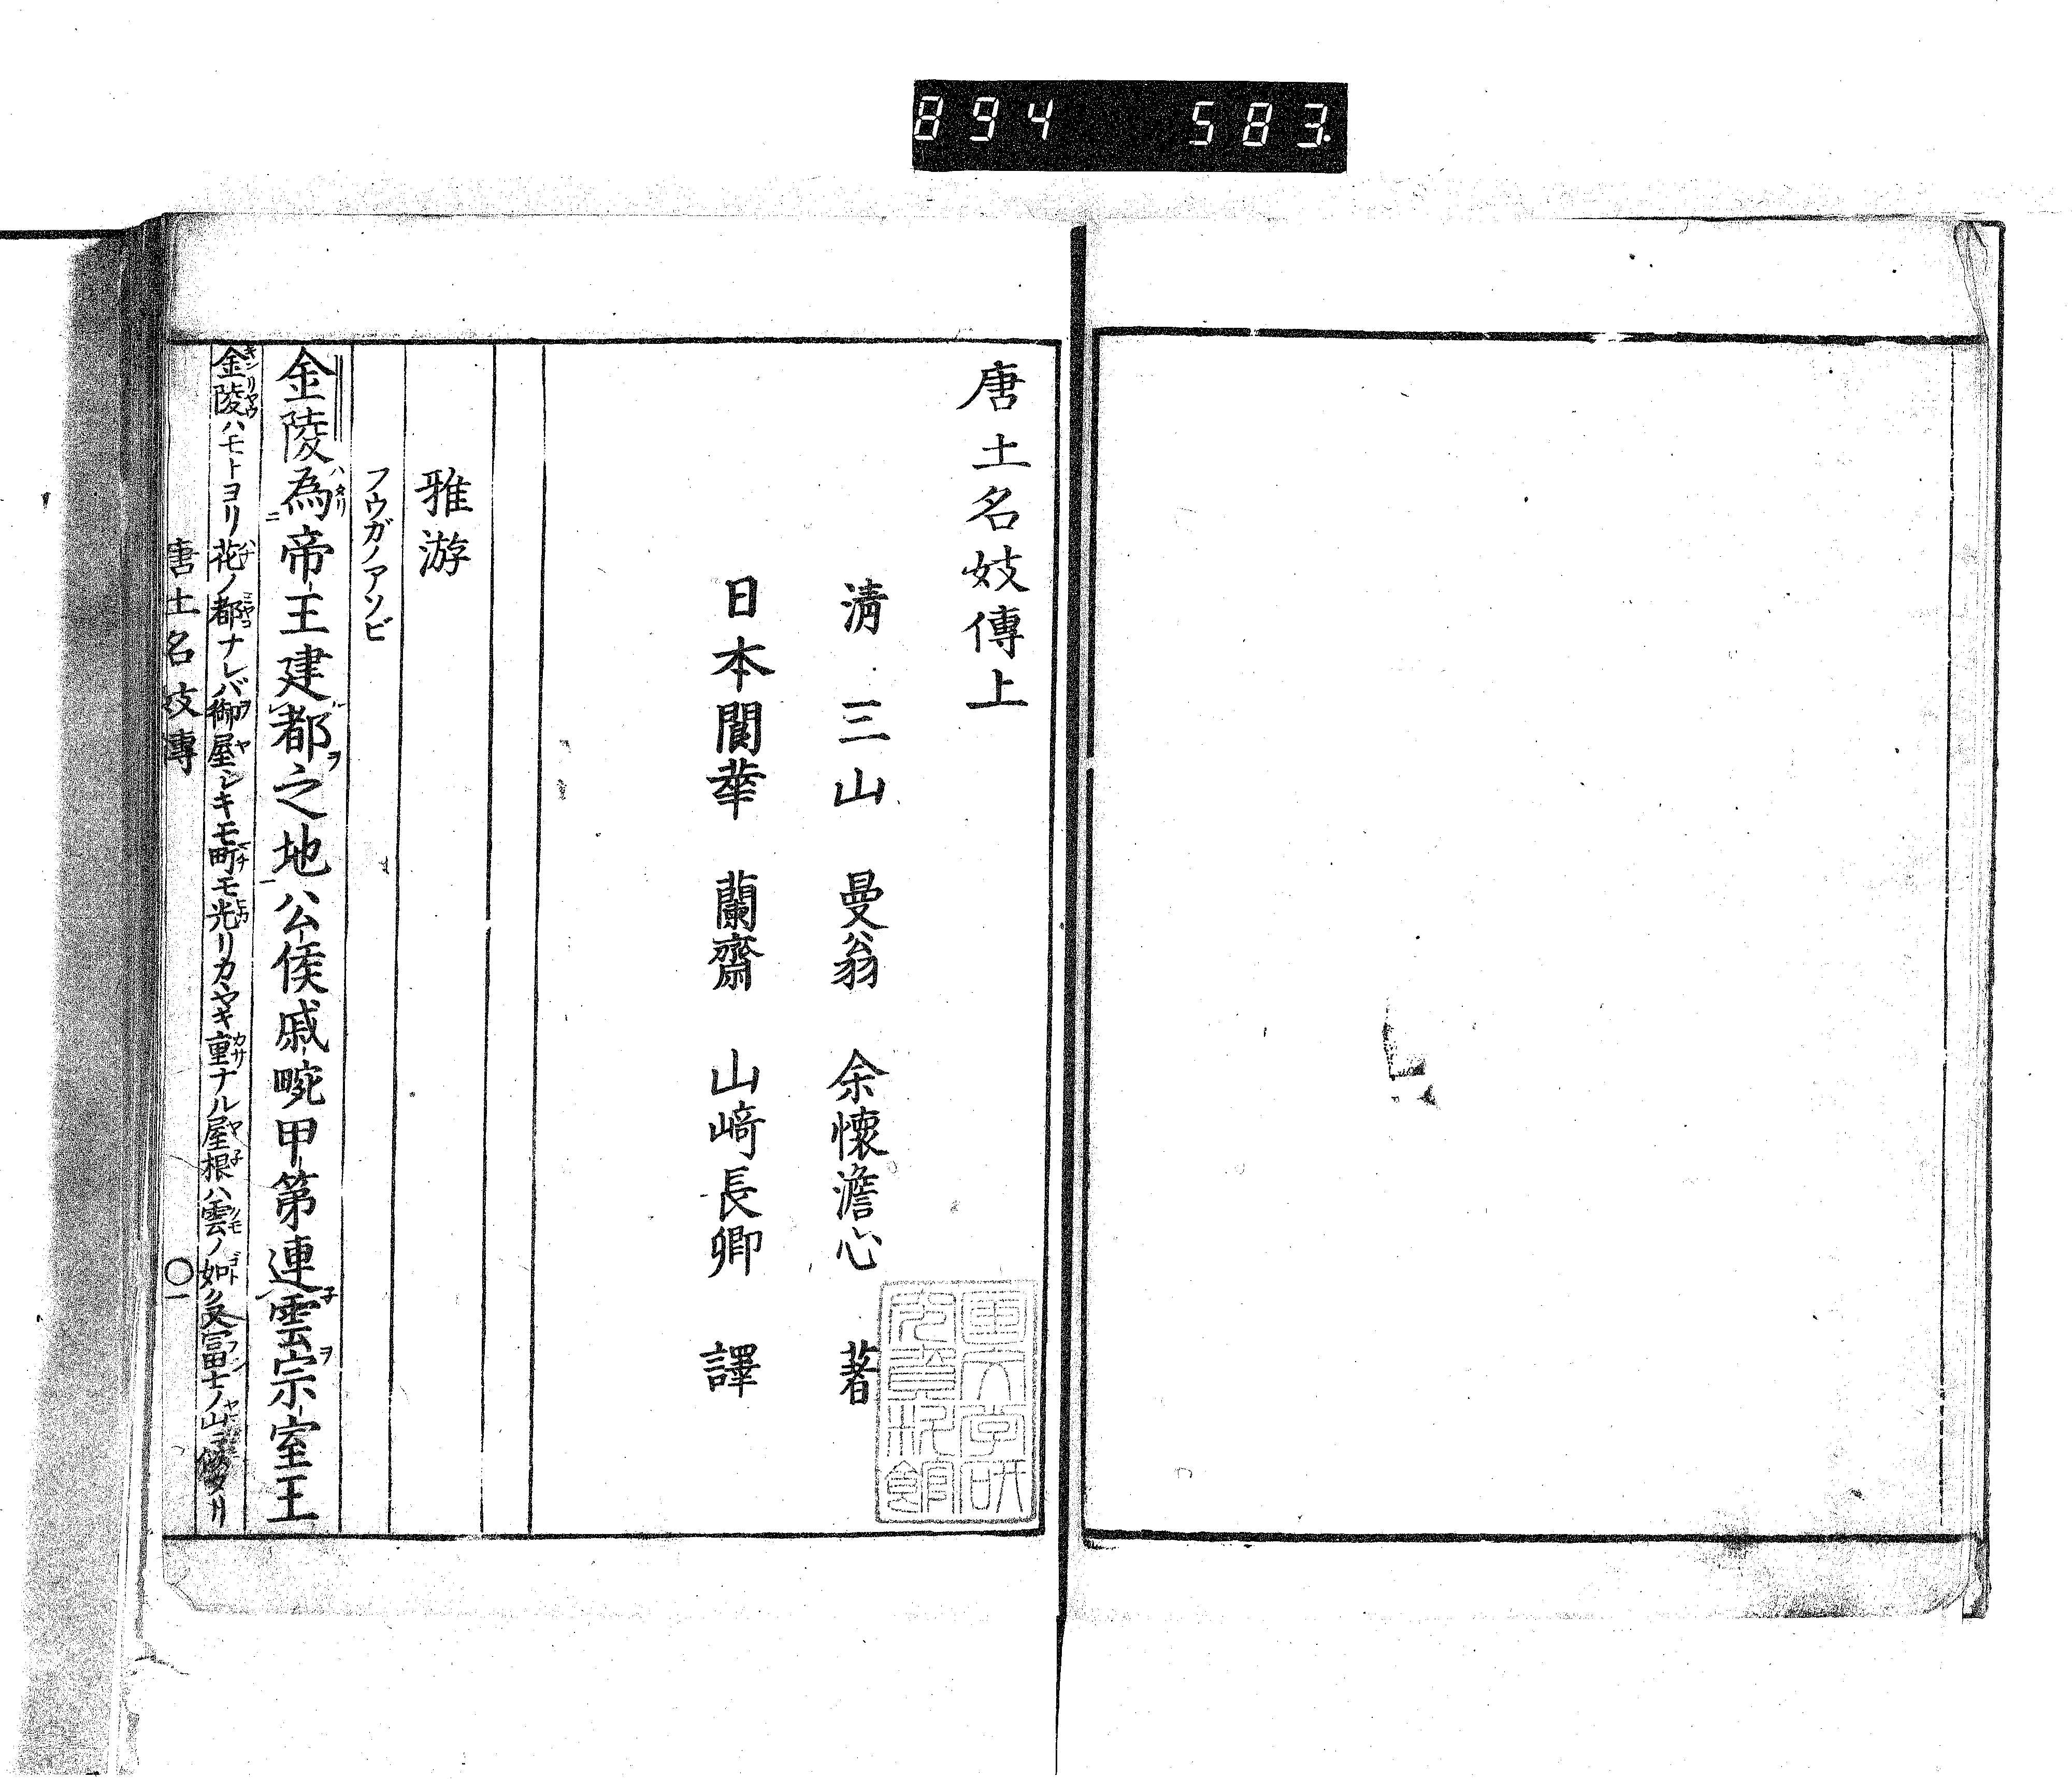 894 583
唐土名妓傳上
清 三山 曼翁 余懷澹心 著
日本 閬華 蘭齋 山﨑長卿 譯
雅游
フウガノアソビ
金陵為帝王建都之地公侯戚畹甲第連雲宗室王
金陵ハモトヨリ花ノ都ナレバ御屋シキモ町モ光リカヽヤキ重ナル屋根ハ雲ノ如ク又冨士ノ山ニ似タリ
唐土名妓傳 〇一